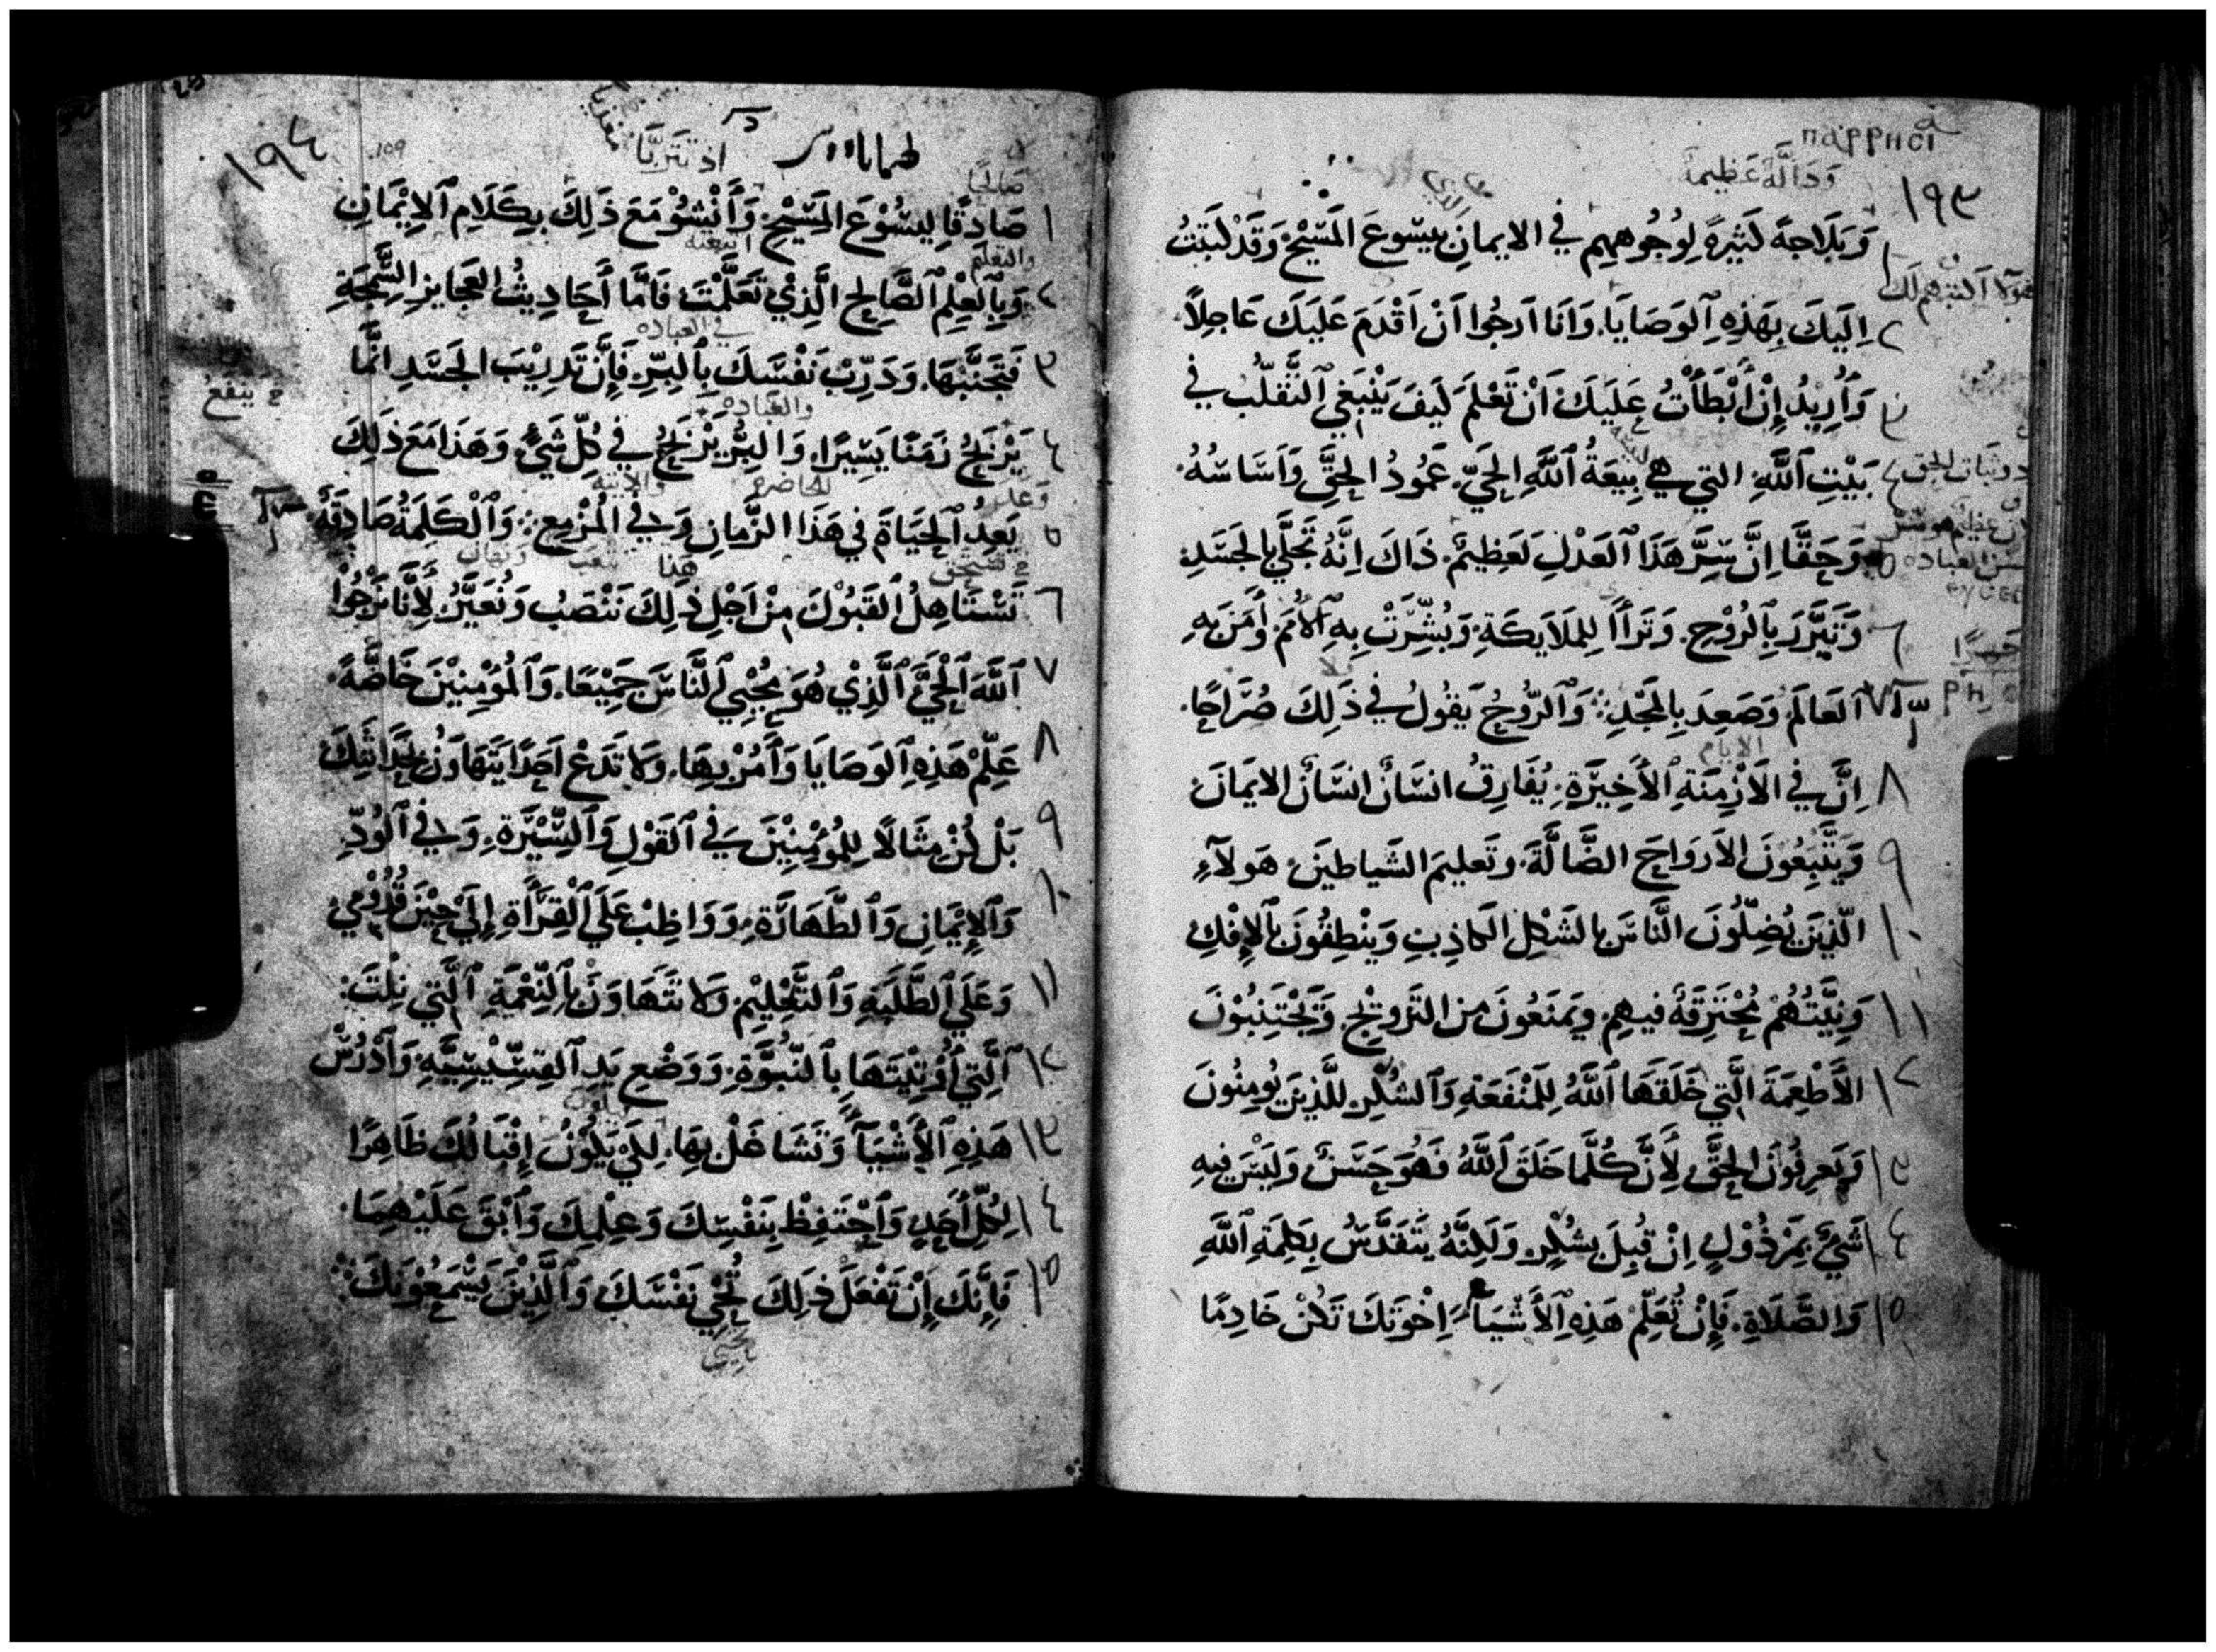 παρρησι
وَدَالَّة عَظِيمة
١٩٣
١ وَبَلَاجَة كَثِيرة لِوُجُوهِهِم في الايمانِ بيَسوعَ المَسِيْحِ وَقَدْ كَتَبتُ
هولا اكتبهم لك
٢ اِلَيكَ بِهَذِهِ ٱلوَصَايَا. وَانَا اَرجُوا اَنْ اَقْدَمَ عَلَيكَ عَاجِلاً.
٣ وَأُرِيدُ إِنْ أَبْطَأْتُ عَلَيكَ اَنْ تَعْلَمَ كَيفَ يَنْبَغي ٱلتَّقَلُّبُ في
٤ بَيْتِ ٱللَّهِ التي هي بِيْعَةُ ٱللَّهِ الحَيّ. عَمُودُ الحَقّ وَاَسَاسُهُ.
وثبات الحق
٥ وَحَقًّا اِنَّ سِرَّ هَذَا ٱلعَدْلِ لَعَظِيمٌ. ذَاكَ اِنَّهُ تَجَلَّي بِالجَسَدِ
٦ وَتَبَرَّرَ بِٱلرُوْحِ. وَتَرَاَا لِلمَلَايِكَةِ. وَبُشِّرَتْ بِهِ ٱلأُمَمَ وَأَمَنَ بِهِ
٧ ٱلعَالَمَ وَصَعِدَ بِالمَجْدِ: وَٱلرُّوحُ يَقُولُ في ذَلِكَ صُرَاحًا.
الايام
٨ اِنَّ في الاَزْمِنَةِ ٱلأَخِيرَةِ. يُفَارِقُ انسَانٌ انسَانٌ الايمَانَ
٩ وَيَتَّبِعُونَ الاَروَاحَ الضَّالَّةَ. وتَعليمَ الشَياطينَ. هَولآءِ
١٠ الّذِينَ يُضِلُّونَ النَّاسَ بالشَكْلِ الكاذِبِ وَيَنْطِقُونَ بِٱلإِفْكِ
١١ وَنِيَّتُهُمْ مُحْتَرِقَةٌ فيهِم. ويَمنَعُونَ من التَزوِيْجِ. وَيَجْتَنِبُوْنَ
١٢ الأَطْعِمَةَ الَّتِي خَلَقَهَا ٱللَّهُ لِلمَنْفَعَةِ وَٱلشُكْرِ للَّذِينَ يُومِنُونَ
١٣ وَيَعرِفُونَ الحَقَّ لِأَنَّ كُلَّمَا خَلَقَ ٱللَّهُ فَهُوَ حَسَنٌ وَلَيْسَ فيهِ
١٤ شَيٌ بِمَرْذُوْلٍ اِنْ قُبِلَ بِشُكْرٍ وَلَكِنَّهُ يَتَقَدَّسُ بِكلِمَةِ ٱللَّهِ
١٥ وَالصَّلَاةِ. فَإِنْ تُعَلِّمْ هَذِهِ ٱلأَشْيَآءَ اِخْوَتَكَ تَكُنْ خَادِمًا
١٩٤
109
اذ تتربَّا
صَالحًا
١ صَادِقًا لِيسُوْعَ المَسِيْحِ. وَأَنْشِوْ مَعَ ذَلِكَ بِكَلَامِ ٱلاِيْمَانِ
والتعلم
اتبعته
٢ وَبِٱلعِلْمِ ٱلصَّالِحِ الَّذِيْ تَعَلَّمْتَ فَامَّا أَحَادِيثُ العَجَايزِ السَّمِجَةِ
في العباده
٣ فَتَجَنَّبْهَا. وَدَرِّبْ نَفْسَكَ بِٱلبِرّ. فَإِنَّ تَدرِيْبَ الجَسَدِ انَّمَا
ينفع
والعباده
٤ يَرْبَحُ زَمَنًا يَسِيْرًا. وَالبِرُّ يَرْبَحُ في كُلِّ شَيْءٍ وَهَذَا مَعَ ذَلِكَ
الحاضره
والاتيه
٥ يَعِدُ ٱلحَيَاةَ في هَذَا الزَّمانِ وَفي المُزْمِعِ: وَٱلْكَلِمَةُ صَادِقَةٌ.
تستحق
هنا
نتعب
ونهان
٦ تَسْتَاهِلُ القَبُوْلَ مِنْ اَجْلِ ذَلِكَ نَنْصَبُ وَنُعَيَّرُ لِأَنَّا نَرْجُوْا
٧ ٱللَّهَ ٱلْحَيَّ ٱلَّذِيْ هُوَ مُحْيِي ٱلنَّاسَ جَمِيْعًا. وَٱلمُؤمِنِيْنَ خَاصَّةً.
٨ عَلِّمْ هَذِهِ ٱلوَصَايَا وَأمُرْ بِهَا. وَلَا تَدَعْ اَحَدًا يَتَهَاوَنُ بِحَدَاثَتِكَ
٩ بَلْ كُنْ مِثَالًا لِلمُؤْمِنِيْنَ في ٱلقَوْلِ وَٱلسِّيْرَةِ. وَفي ٱلوُدِّ.
١٠ وَٱلإِيْمَانِ وَٱلطَّهَارَةِ. وَوَاظِبْ عَلَي ٱلْقِرَأَةِ إِلَي حِيْنَ قُدُوْمِي
١١ وَعَلَي ٱلطَّلَبَةِ وَٱلتَّعْلِيْمِ. وَلَا تَتَهَاوَنَ بِٱلنِّعْمَةِ ٱلَّتي نِلْتَ:
١٢ ٱلَّتِي أُوْتِيْتَهَا بِٱلنُّبُوَّةِ. وَوَضْعِ يَدِ ٱلقِسِّيْسِيَّةِ. وَٱدْرُسْ
١٣ هَذِهِ ٱلأَشْيَآءَ وَتَشَاغَلْ بِهَا. لِكَي يَكُوْنُ إِقْبَالُكَ ظَاهِرًا
١٤ لِكُلِّ أَحَدٍ وَٱحْتَفِظْ بِنَفْسِكَ وَعِلْمِكَ وَٱبْقَ عَلَيْهِمَا.
١٥ فَإِنَّكَ إِنْ تَفْعَلْ ذَلِكَ تُحْيِ نَفْسَكَ وَٱلَّذِيْنَ يَسْمَعُوْنَكَ: